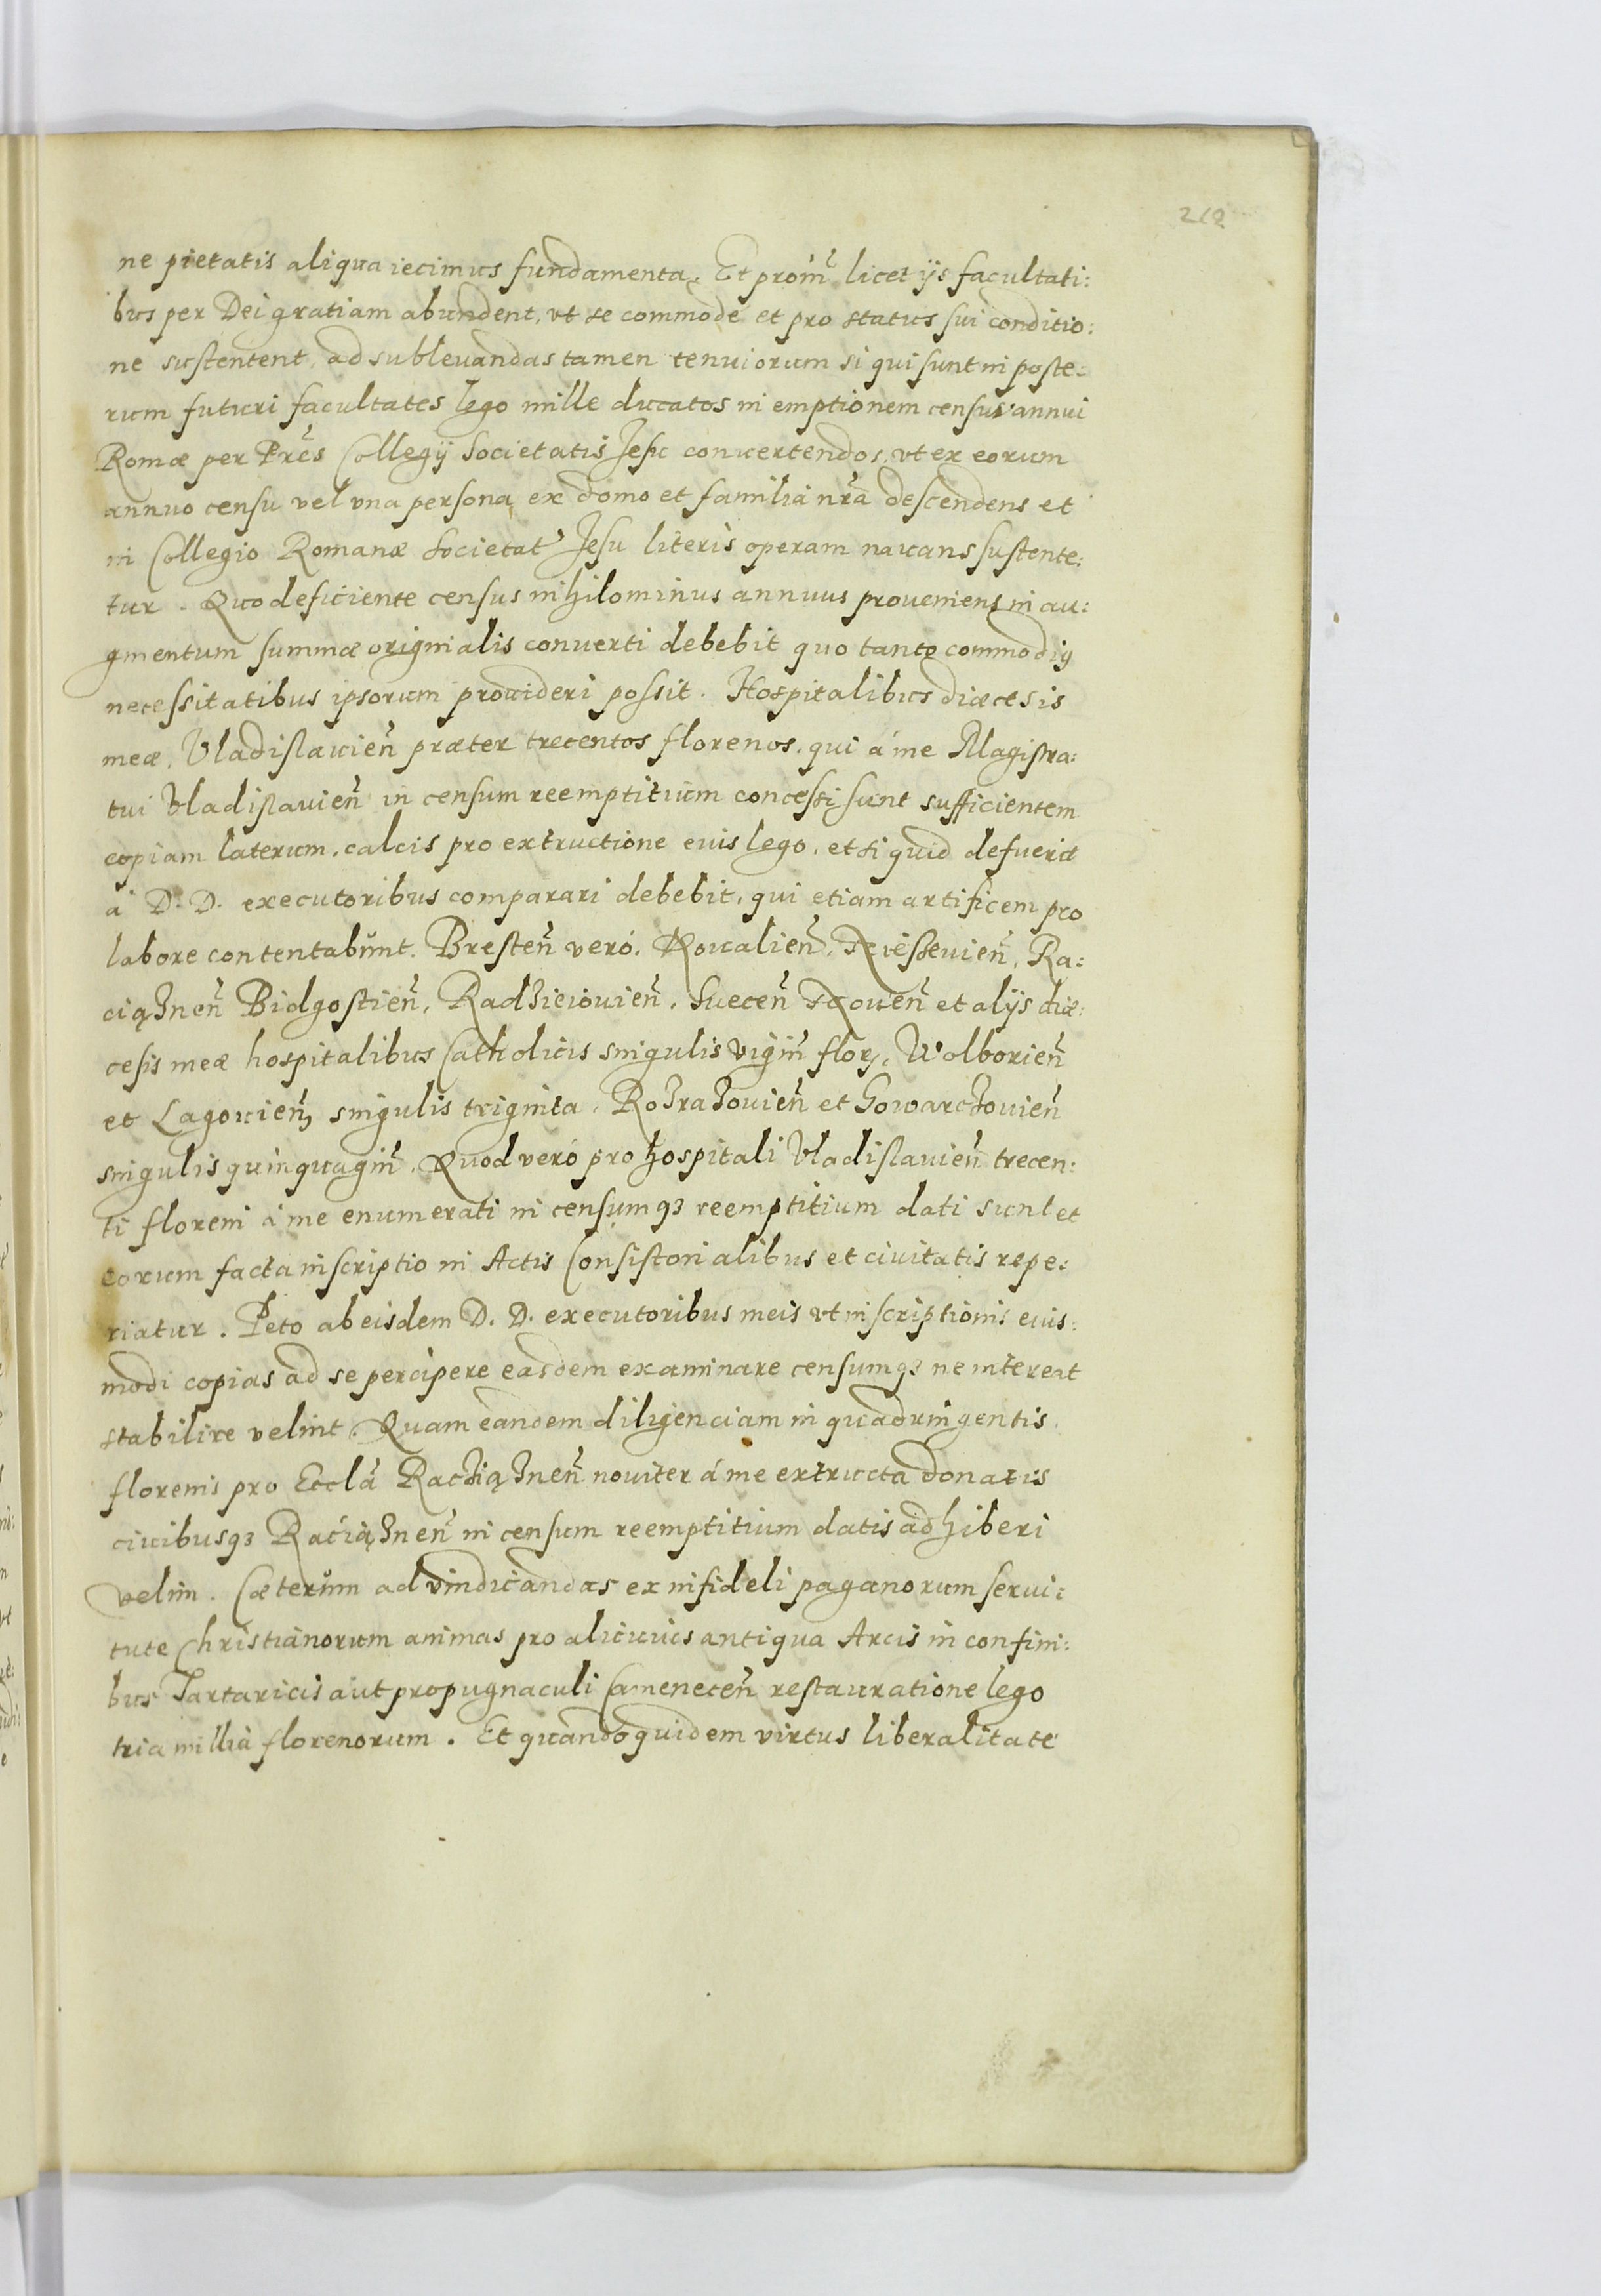 ne pietatis aliqua iecimus fundamenta. Et prom̃ licet ijs facultati:
bus per Dei gratiam abundent, vt se commode et pro status sui conditio:
ne sustentent, ad subleuandas tamen tenuiorum si qui sunt in poste:
rum futuri facultates lego mille ducatos in emptionem census annui
Romæ per Pr̃es Collegij Societatis Jesu conuertendos, vt ex eorum
annuo censu vel vna persona ex domo et familia nr̃a descendens et
in Collegio Romanæ Societat Jesu literis operam nauans sustente:
tur. Quo deficiente census nihilominus annuus proueniens in au:
gmentum summæ originalis conuerti debebit quo tanto commodiꝰ
necessitatibus ipsorum prouideri possit. Hospitalibus diæcesis
meæ, Vladislauieñ præter trecentos florenos, qui á me Magistra:
tui Vladislauieñ in censum reemptitium concessi sunt sufficientem
copiam laterum, calcis pro extructione euis lego, et si quid defuerit
á D. D. executoribus comparari debebit, qui etiam artificem pro
labore contentabunt. Bresteñ veró, Kowalieñ, Nieszeuieñ, Ra:
ciąZneñ Bidgostieñ, RadZieiouieñ, Sueceñ et alijs diæ:
cesis meæ hospitalibus Catholicis singulis vigin̄ flor, Wolborieñ
et Lagouieñ singulis triginta, RoZraZouieñ et GowarcZouieñ
singulis quinquagin̄. Quod veró pro hospitali Vladislauieñ trecen:
ti floreni á me enumerati in censumqꝫ reemptitium dati sunt et
eorum facta inscriptio in Actis Consistorialibus et ciuitatis repe:
riatur. Peto ab eisdem D. D. executoribus meis vt inscriptionis euis:
modi copias ad se percipere easdem examinare censumqꝫ ne intereat
stabilire velint. Quam eandem diligenciam in quadringentis
florenis pro Eccla RacZiąZneñ nouiter á me extructa donatis
ciuibusqꝫ RaciąZneñ in censum reemptitium datis adhiberi
velim. Cæterum ad vindicandas ex infideli paganorum serui:
tute Christianorum animas pro alicuius antiqua Arcis in confini:
bus Tartaricis aut propugnaculi Cameneceñ restauratione lego
tria millia florenorum. Et quandoquidem virtus liberalitate